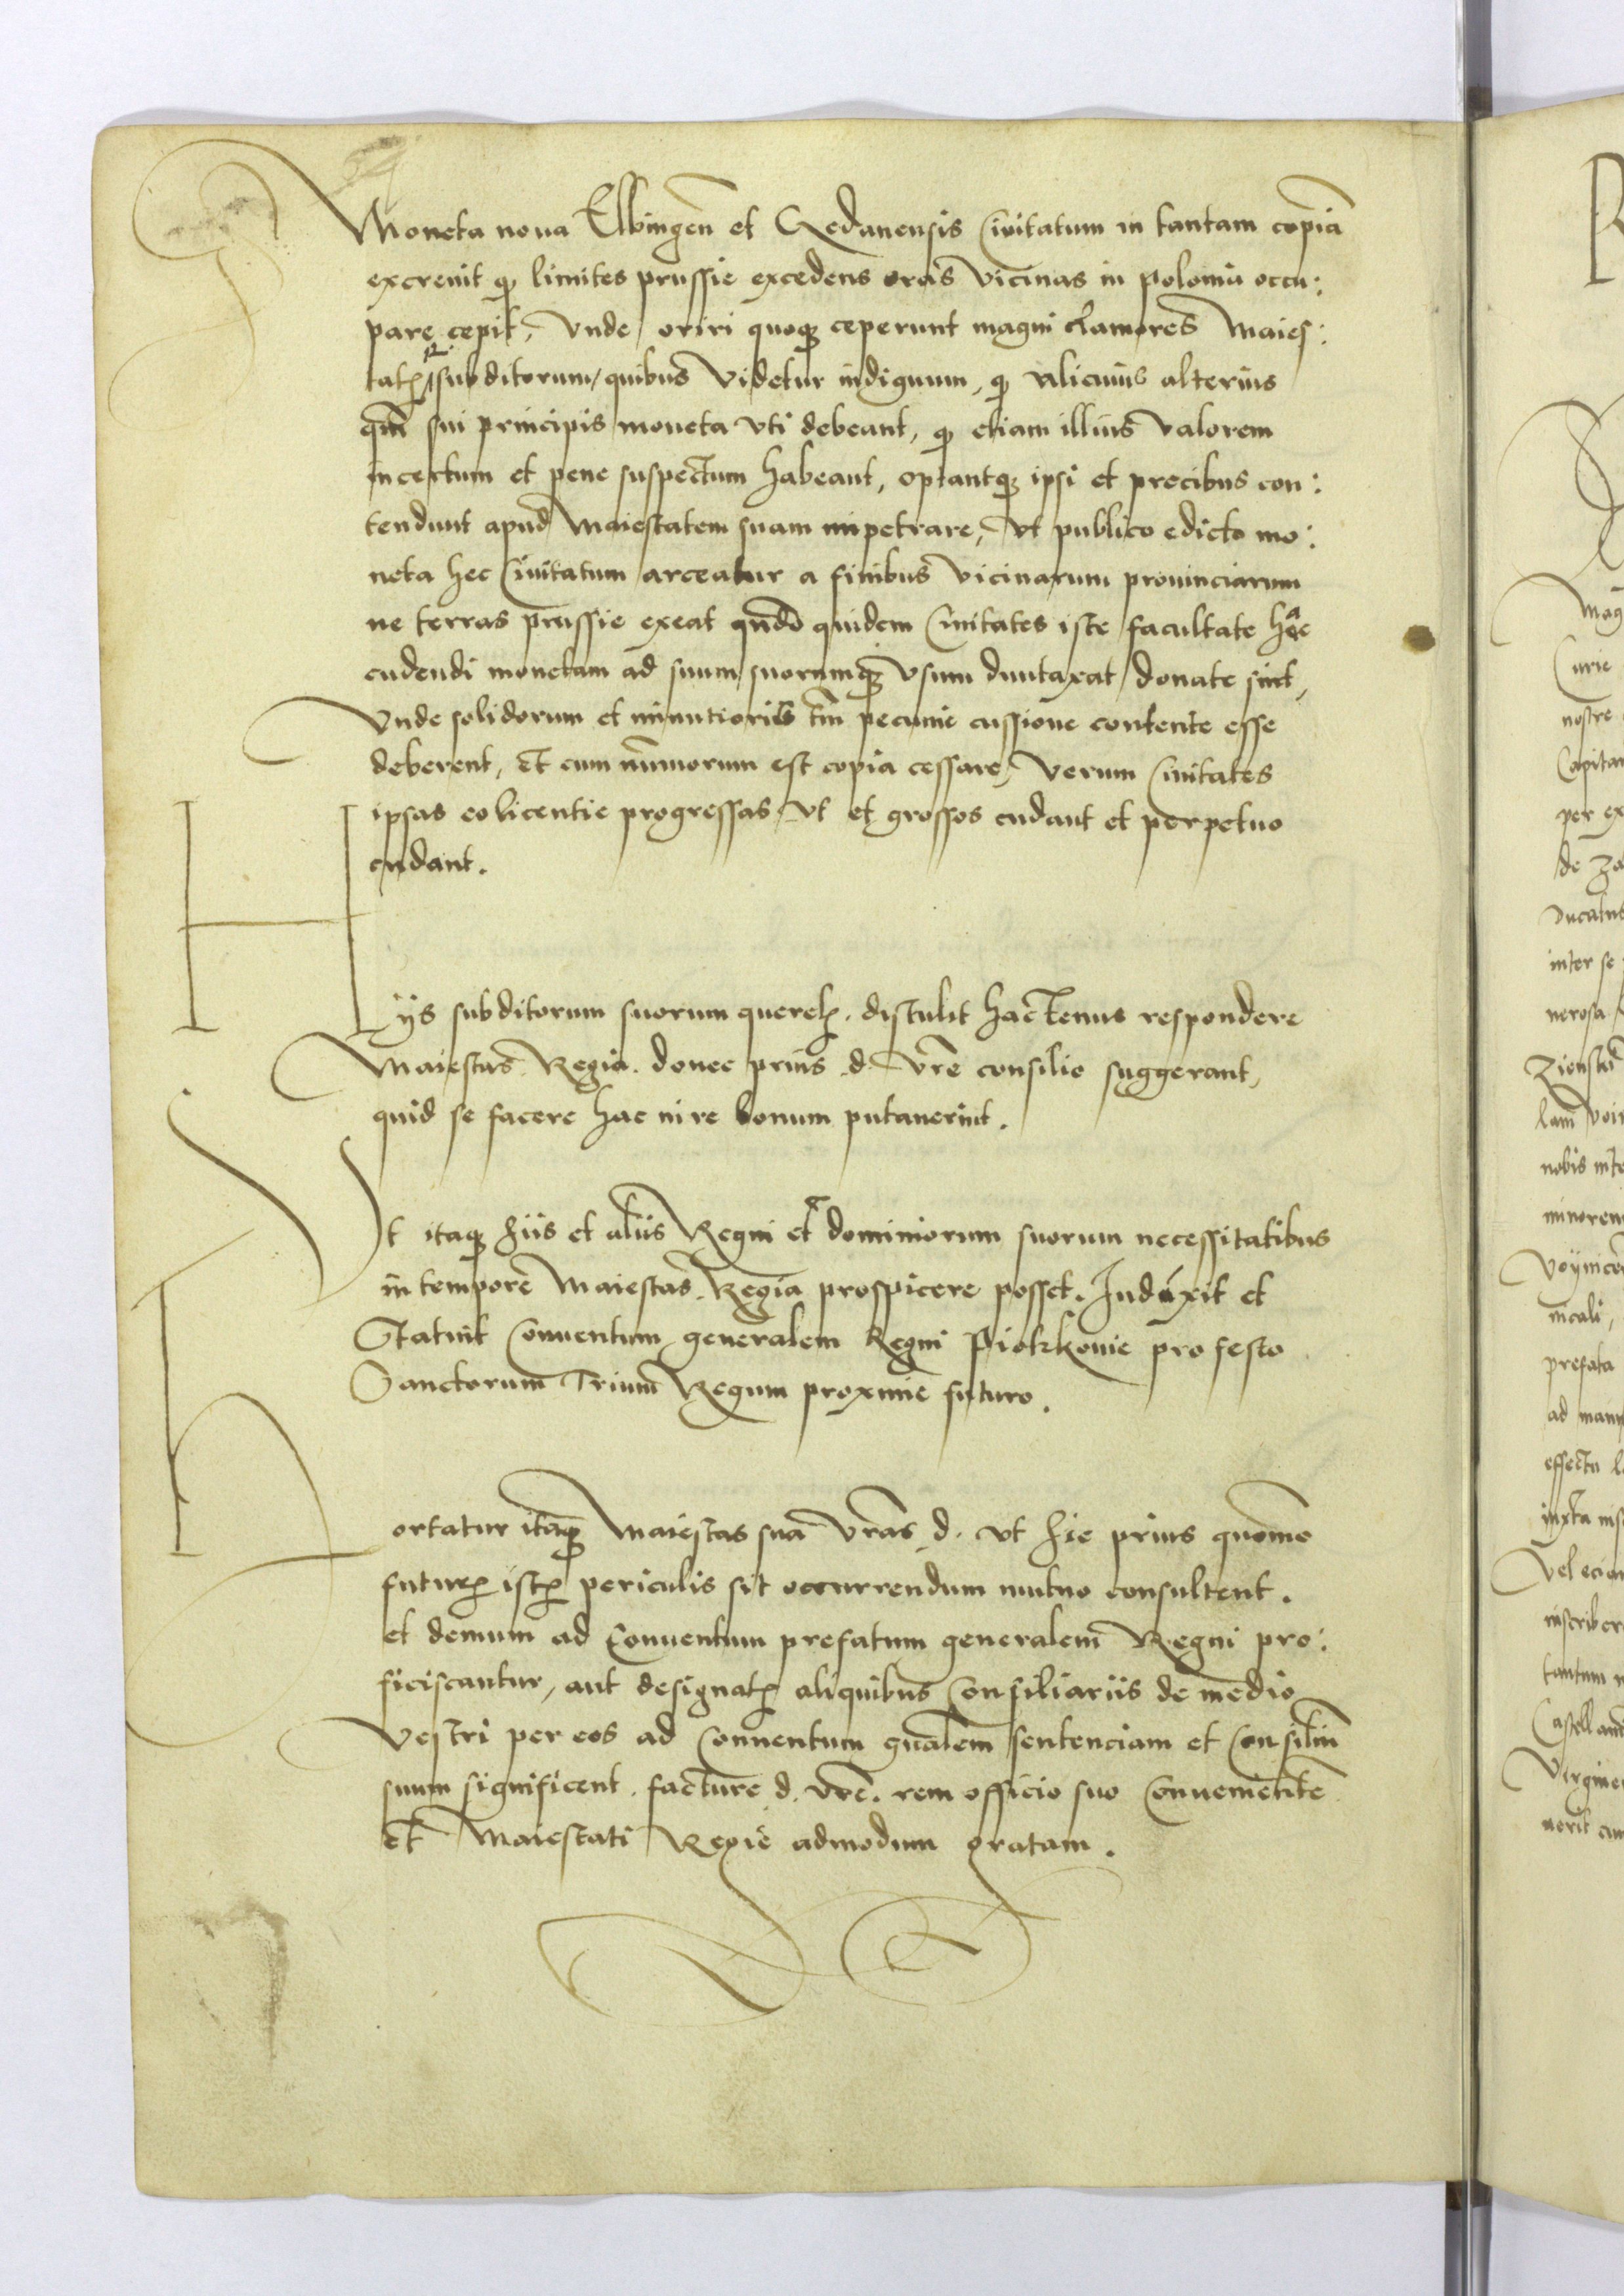 Moneta noua Elbingeñ et Gedanensis Ciuitatum in tantam copiã
excreuit q̃ limites prussie excedens oras vicinas in poloniã occu:
pare cepit, Vnde oriri quoq̃ ceperunt magni clamores Maies:
tatꝭ R subditorum, quibus videtur indignum, q̃ alicuius alterius
qm̃ sui principis moneta vti debeant, q̃ etiam illius valorem
incertum et pene suspectum habeant, optantq̃ ipsi et precibus con:
tendunt apud Maiestatem suam impetrare, vt publico edicto mo:
neta hec Ciuitatum arceatur a finibus vicinarum prouinciarum
ne terras prussie exeat qñdo quidem Ciuitates iste facultate hac
cudendi monetam ad suum suorumq̃ vsum duntaxat donate sint,
Vnde solidorum et minutioris tm̃ pecunie cussione contente esse
deberent, Et cum nũmorum est copia cessare, Verum Ciuitates
ipsas eo licentie progressas vt et grossos cudant et perpetuo
cudant.
Hijs subditorum suorum querelꝭ distulit hactenus respondere
Maiestas Regia donec prius d. vre consilio suggerant,
quid se facere hac in re bonum putauerint.
Vt itaq̃ hiis et aliis Regni et dominiorum suorum necessitatibus
in tempore Maiestas Regia prospicere posset. Indixit et
Statuit Conuentum generalem Regni Piotrkouie pro festo
Sanctorum Trium Regum proxime futuro.
Hortatur itaq̃ Maiestas sua vras d. vt hie prius quõmo
futurꝭ istꝭ periculis sit occurrendum mutuo consultent.
et demum ad Conuentum prefatum generalem Regni pro:
ficiscantur, aut designatꝭ aliquibus Consiliariis de medio
Vestri per eos ad Conuentum gñalem sentenciam et Consiliũ
suum significent. facture d. vre. rem officio suo Conuenientẽ
et Maiestati Regie admodum gratam.